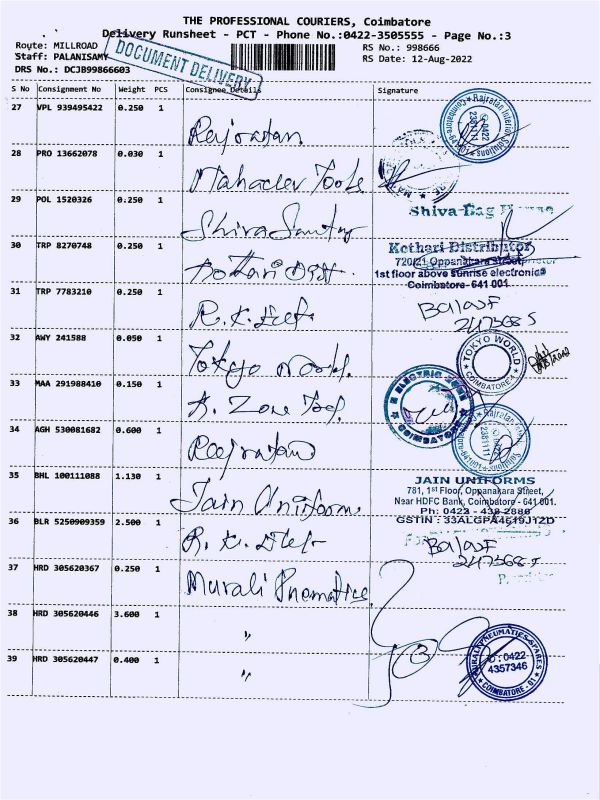 THE PROFESSIONAL COURIERS, Coimbatore
Delivery Runsheet - PCT - Phone No.:0422-3505555 - Page No.:3
Route: MILLROAD
RS No.: 998666
Staff: PALANISAMY
RS Date: 12-Aug-2022
DRS No.: DCJB99866603
DOCUMENT DELIVERY
S No Consignment No Weight PCS Consignee Details Signature
27 VPL 939495422 0.250 1
Rajratan
28 PRO 13662078 0.030 1
Mahadev Tools
29 POL 1520326 0.250 1
Shiva Bag House
Shiva
30 TRP 8270748 0.250 1
Kothari Distributor
720/21 Oppanakara Street,
1st floor above sunrise electronics
Coimbatore- 641 001
Kothari Dist.
31 TRP 7783210 0.250 1
Balaji
R.K.
32 AWY 241588 0.050 1
TOKYO WORLD
COIMBATORE-1
Tokyo World.
33 MAA 291988410 0.150 1
ELECTRIC ZONE
COIMBATORE
Zone
34 AGH 530081682 0.600 1
Rajratan
Rajratan
35 BHL 100111088 1.130 1
JAIN UNIFORMS
781, 1st Floor, Oppanakara Street,
Near HDFC Bank, Coimbatore - 641 001.
Ph: 0422 - 438 2886
Jain Uniform
36 BLR 5250909359 2.500 1
R.K.
Balaji
37 HRD 305620367 0.250 1
Murali Pnematics
38 HRD 305620446 3.600 1
"
39 HRD 305620447 0.400 1
"
MURALI PNEUMATICS SPARES
0422
4357346
COIMBATORE - 01